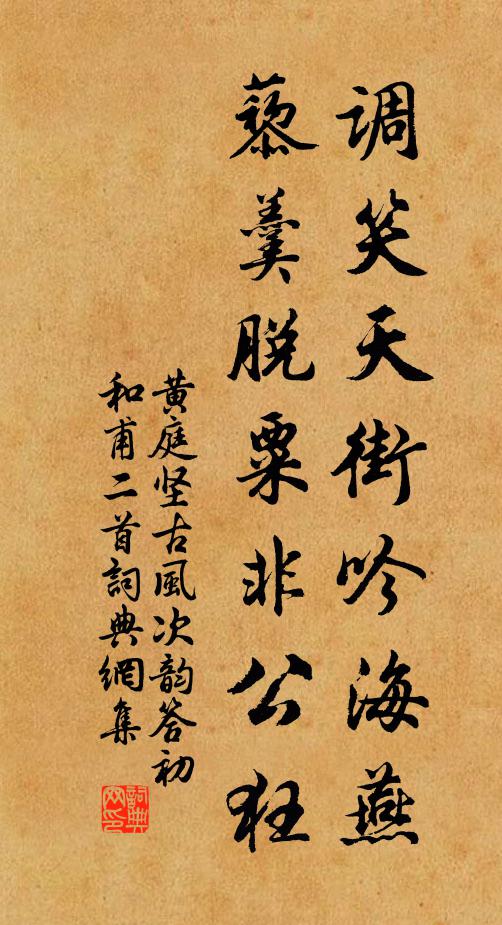 调笑天街吟海燕
藜羹脱粟非公狂
黄庭坚古風次韵答初
和甫二首詞典網集
詞典網印